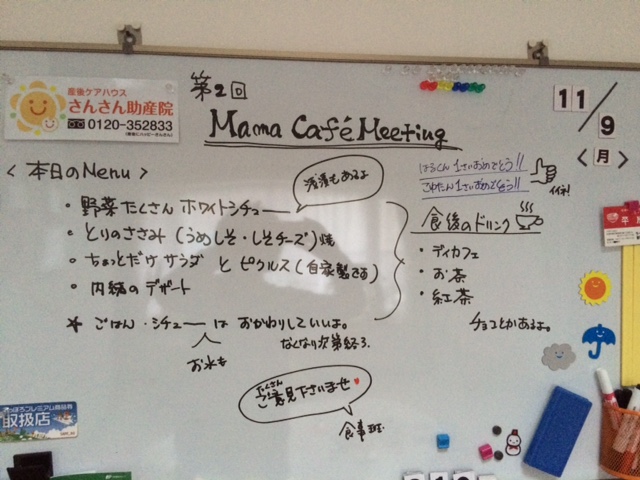 産後ケアハウス
さんさん助産院
0120-352833
第2回
Mama Café Meeting
11/9
<月>
はるくん 1さいおめでとう!!
こわたん 1さいおめでとう!!
イイネ!
<本日のMenu>
・野菜たくさん ホワイトシチュー
・とりのささみ (うめしそ・しそチーズ) 焼
・ちょっとだけ サラダ と ピクルス (自家製さる)
・内緒の デザート
* ごはん・シチュー は おかわりしていいよ。
お水も
なくなり次第終了。
食後のドリンク
・ディカフェ
・お茶
・紅茶
チョコとかあるよ。
たくさん
ご意見下さいませ
食事班
プレミアム商品券
取扱店